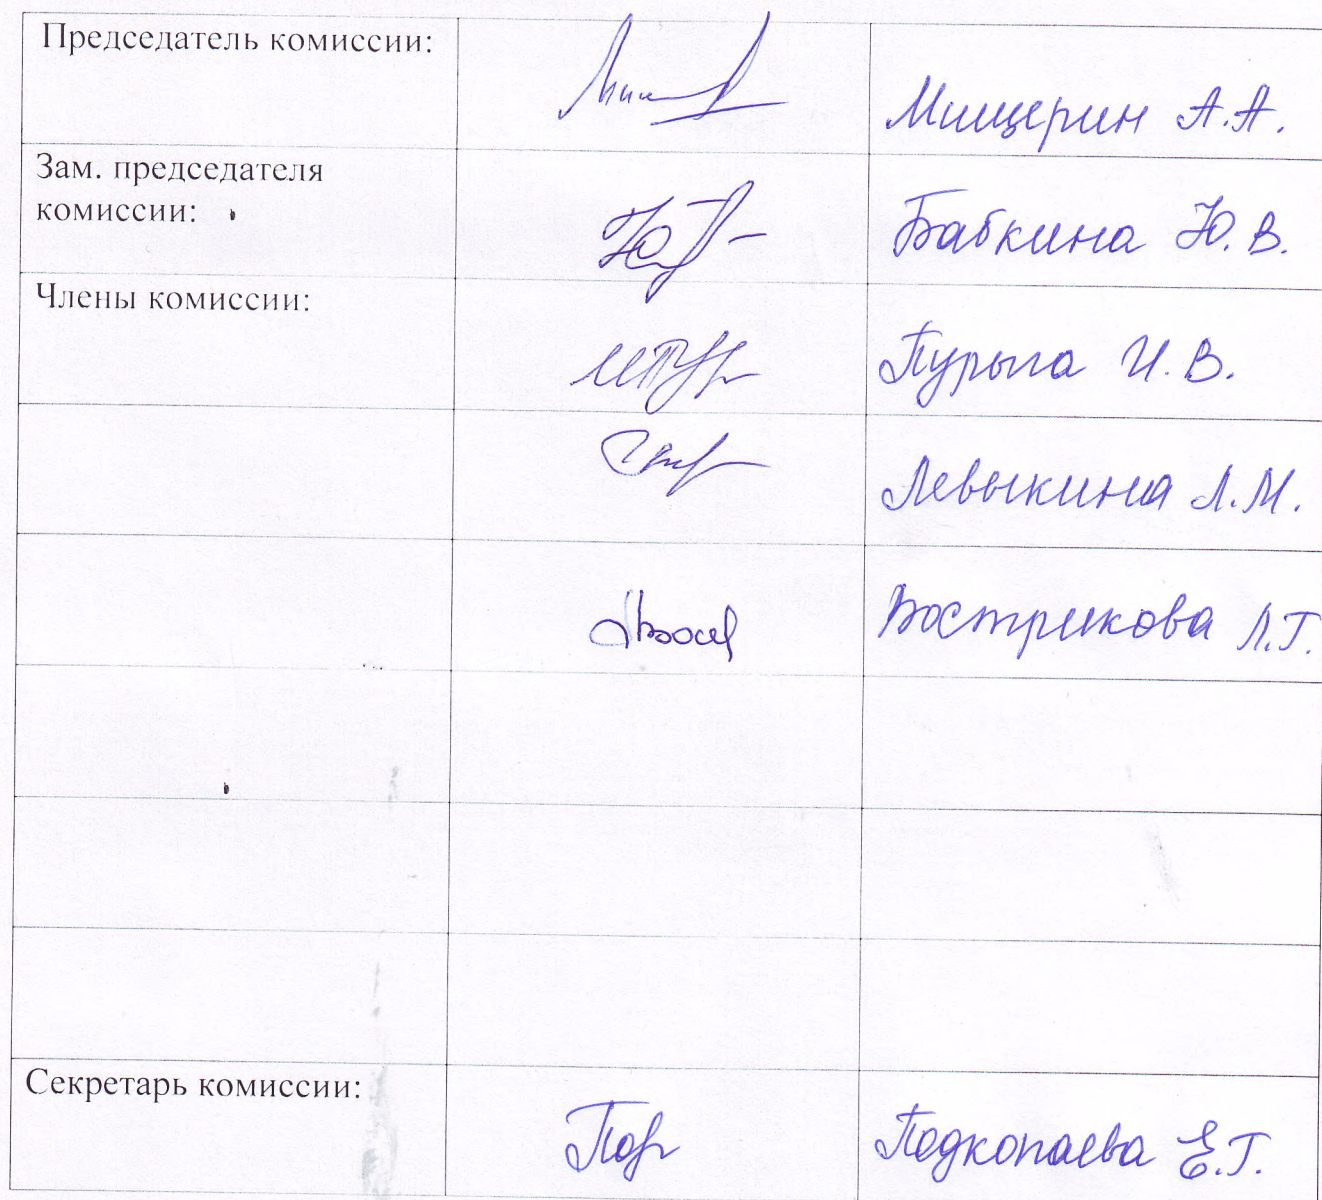 Председатель комиссии:
Мищерин А.А.
Зам. председателя
комиссии:
Бабкина Ю.В.
Члены комиссии:
Пурыга И.В.
Левыкина Л.М.
Вострикова Л.Г.
Секретарь комиссии:
Подкопаева Е.Г.